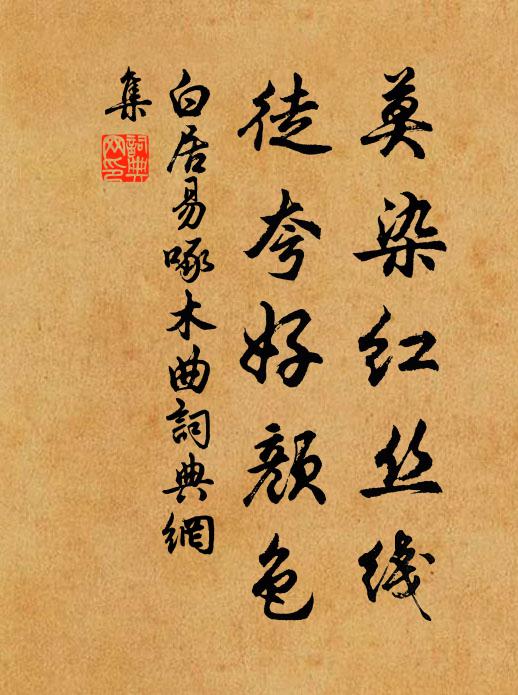 莫染红丝线
徒夸好颜色
白居易啄木曲詞典網
集
詞典网印